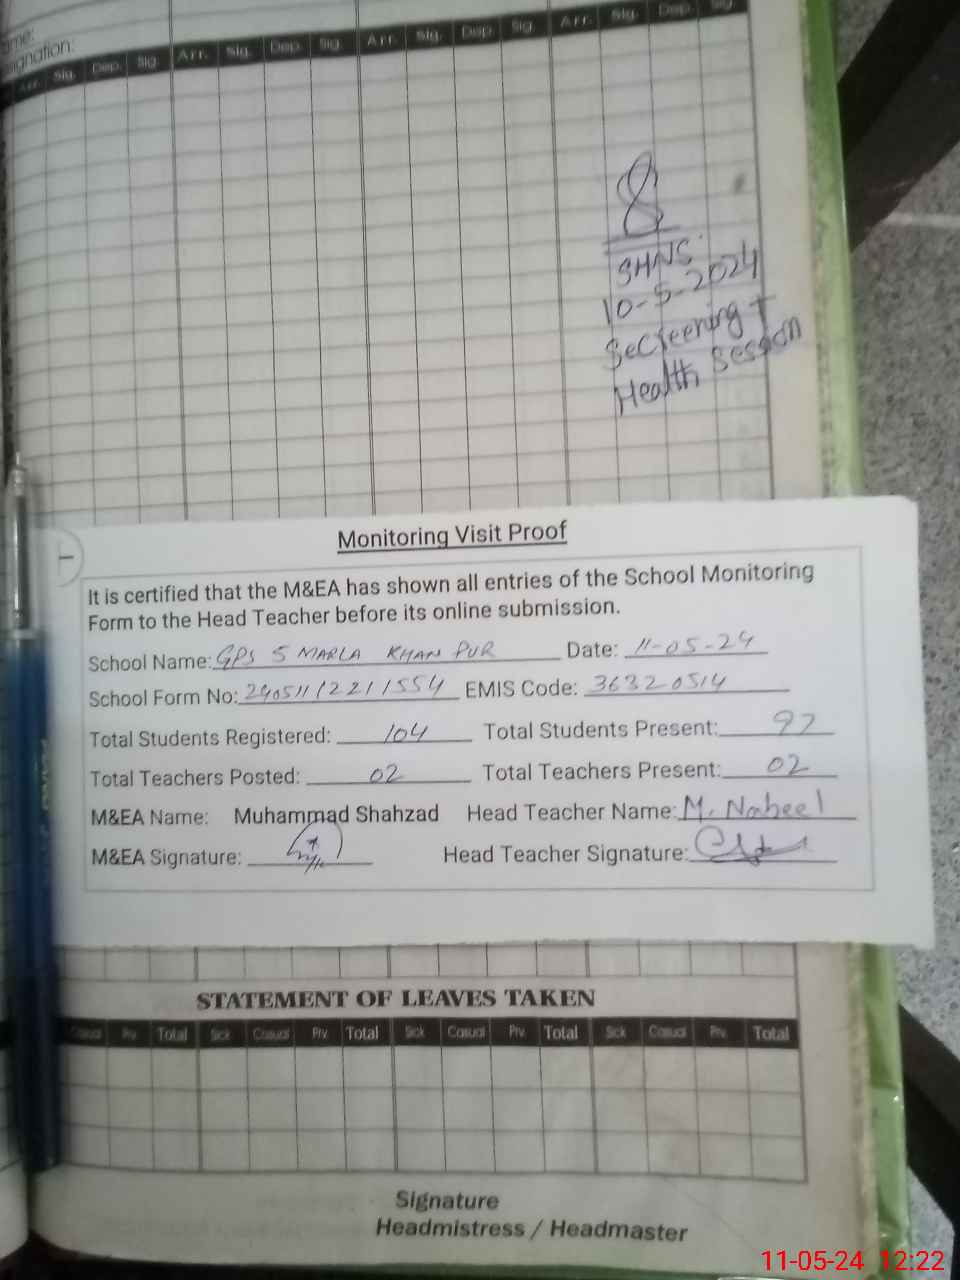 ame:
signation:
Arr. Sig. Dep. Sig. Arr. Sig. Dep. Sig. Arr. Sig. Dep. Sig. Arr. Sig. Dep. Sig.
SHNS
10-5-2024
SeCreening +
Health Session
Monitoring Visit Proof
It is certified that the M&EA has shown all entries of the School Monitoring
Form to the Head Teacher before its online submission.
School Name: GPS 5 MARLA KHAN PUR Date: 11-05-24
School Form No: 24051112211554 EMIS Code: 36320514
Total Students Registered: 104 Total Students Present: 97
Total Teachers Posted: 02 Total Teachers Present: 02
M&EA Name: Muhammad Shahzad Head Teacher Name: M. Nabeel
M&EA Signature: Head Teacher Signature:
STATEMENT OF LEAVES TAKEN
Casual Prv. Total Sick Casual Prv. Total Sick Casual Prv. Total Sick Casual Prv. Total
Signature
Headmistress / Headmaster
11-05-24 12:22